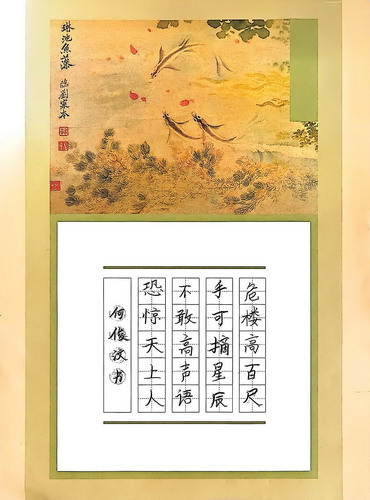 琳池魚藻
臨劉寀本
危楼高百尺
手可摘星辰
不敢高声语
恐惊天上人
何俊汶书